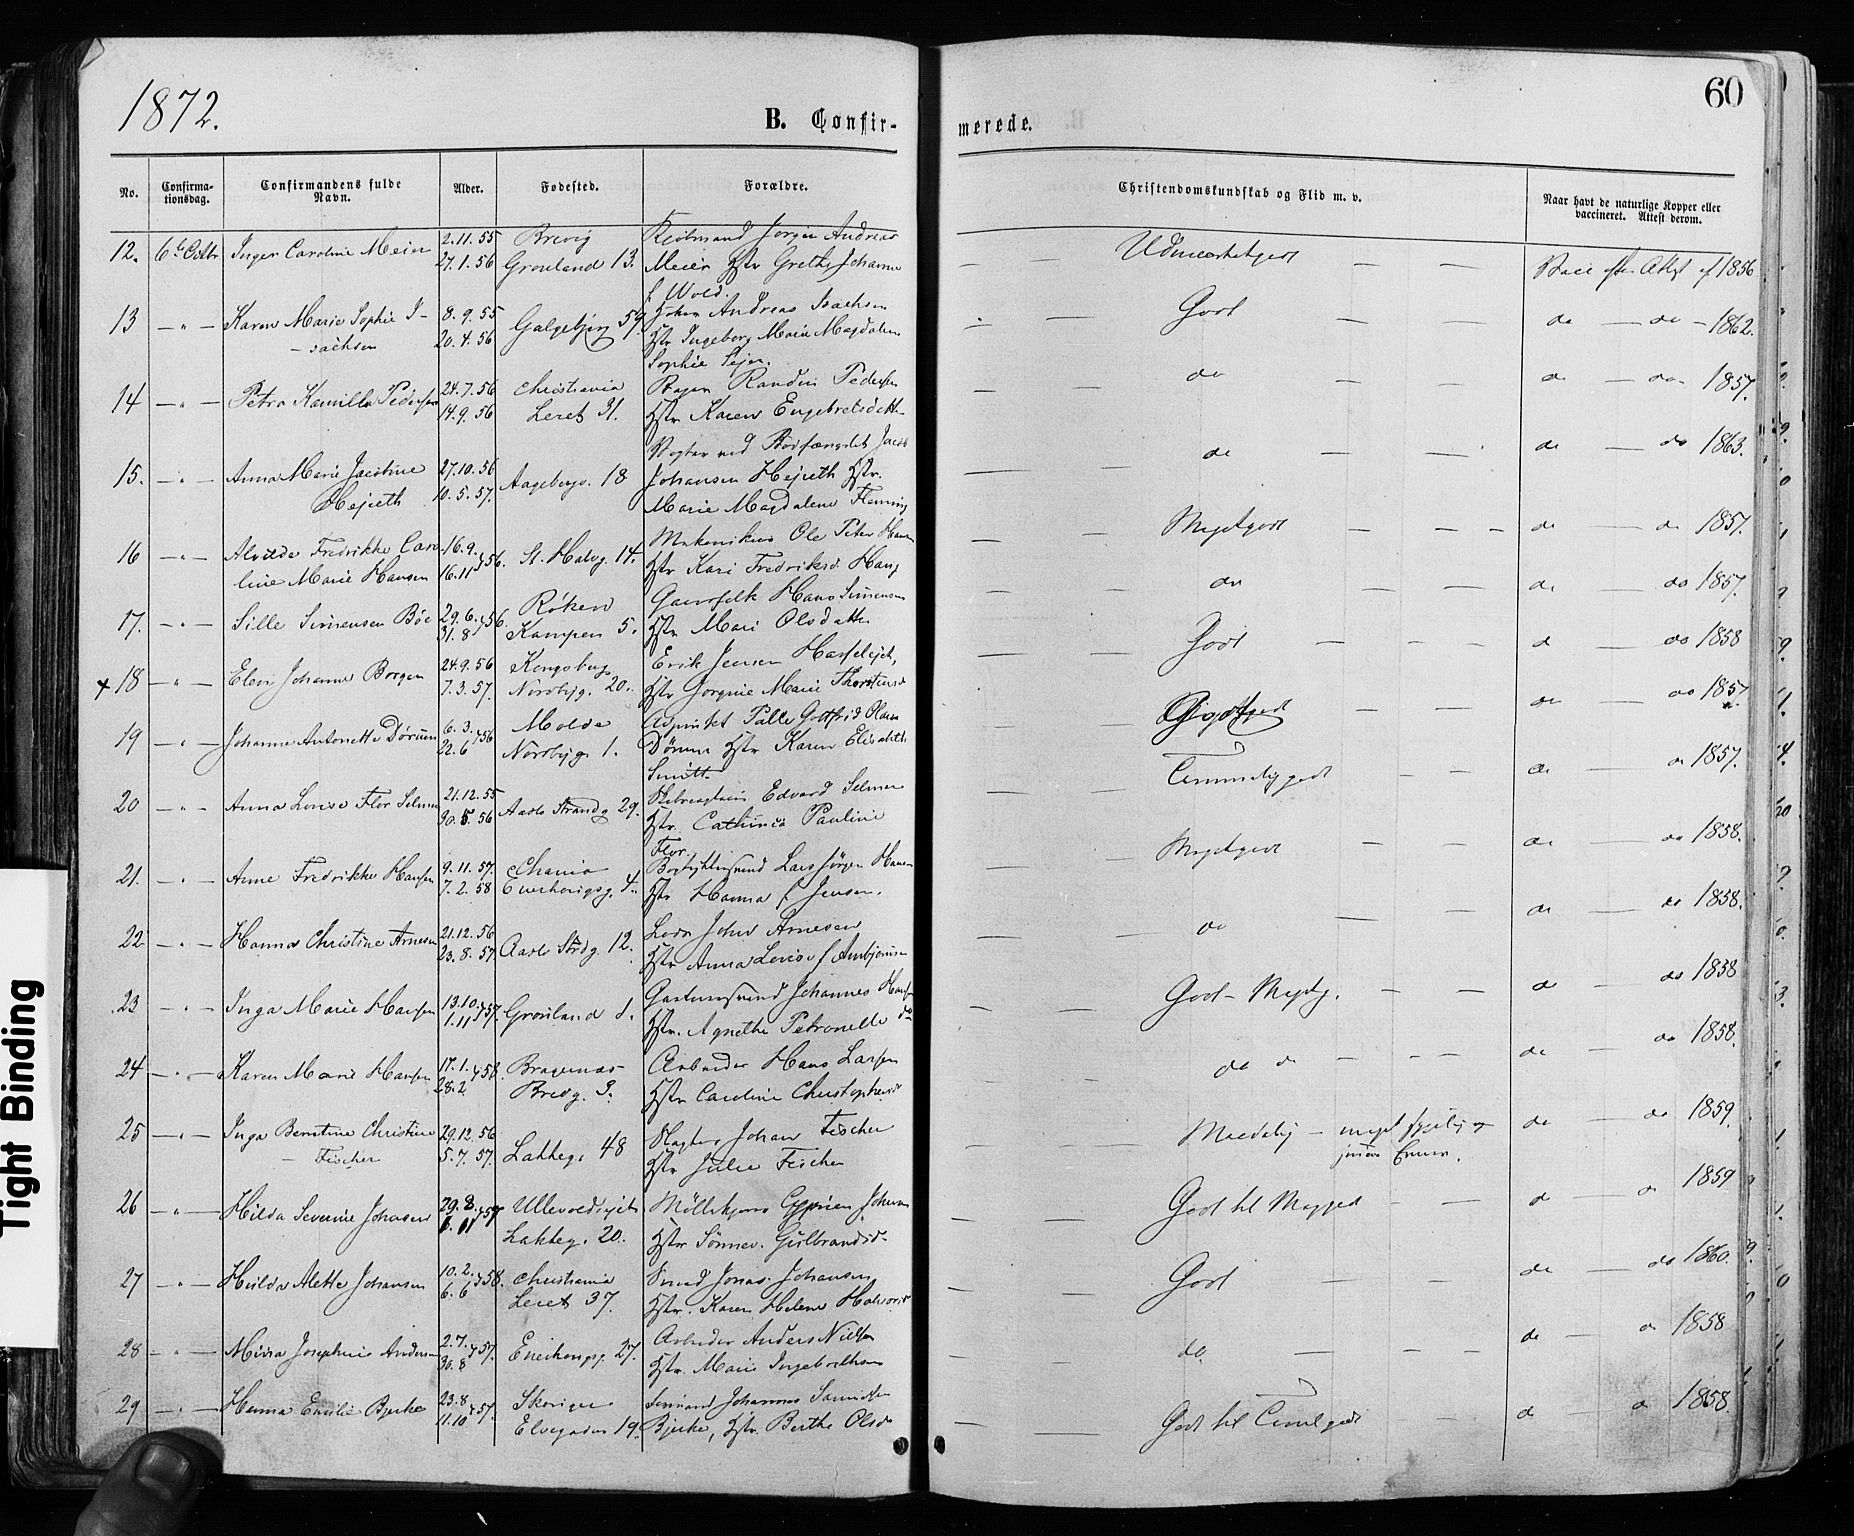 1872.
B. Confir-
merede.
60
No.
Confirma-
tionsdag.
Confirmandens fulde
Navn.
Alder.
Fødested.
Forældre.
Christendomskundskab og Flid m. v.
Naar havt de naturlige Kopper eller
vaccineret. Attest derom.
12. 6te Octbr Inger Caroline Meier 2.11.55 27.1.56 Brevig Grønland 13. Kjøbmand Jørgen Andreas
Meier Hstr Grethe Johanne
f Wold.
Udmærketgodt — — Vacc efter Attest af 1856
13 — " — Karen Marie Sophie I-
sachsen 8.9.55 20.4.56 Galgebjerg 59 Andreas Isachsen
Hstr Ingeborg Marie Magdalene
Sophie
Godt do — do — 1862.
14 — " — Petra Kamilla Pedersen 24.7.56 14.9.56 Christiania Leret 31. Randin Pedersen
Hstr Karen Engebretsdatter
do — — do — do 1857.
15. — " — Anna Marie Jacobine
Hejeth 27.10.56 10.5.57. Aagebergv. 18 Vogter ved Bodfængslet Jacob
Johansen Hejeth Hstr.
Marie Magdalene Fleming
do — — do — do 1863.
16 — " — Alvilde Fredrikke Caro-
line Marie Hansen 16.9. 16.11 56. St. Halvg. 14. Mekanikus Ole Peter Hansen
Hstr Kari Fredriksd Haug
Megetgodt — — do — do 1857.
17. — " — Sille Simensen Bøe 29.6. 31.8 56. Røken Kampen 5. Gaardfolk Hans Simensen
Hstr Mari Olsdatter
do — — do do 1857.
x 18 — " — Elen Johanne Borgen 24.9.56 7.3.57. Kongsberg Nordbyg. 20. Erik Jensen
Hstr Jorgine Marie Thorstensd
Godt — — do do 1858
19 — " — Johanne Antonette Dørum 6.3. 22.6 56 Molde Nordbyg. 1. Adjunkt Palle Gottfrid Olaus
Dørum Hstr Karen Elisabeth
Smitt.
— — do do 1857
20 — " — Anna Lovise Flor Selmer 21.12.55 30.5.56 Aaslo Strandg 29. Edvard Selmer
Hstr. Cathinca Pauline
Flor.
Temmeliggodt — — do do 1857.
21. — " — Anne Fredrikke Hansen 9.11.57. 7.2.58 Chania Enerhaugsg. 4. Lars Jørgen Hansen
Hstr Hanna f Jensen.
Megetgodt — — do do 1858.
22 — " — Hanna Christine Arnesen 21.12.56 23.8.57. Aaslo Strdg. 12. Lods John Arnesen
Hstr Anna Lovise f Arnbjørnsen
do — — do — do 1858.
23 — " — Inga Marie Hansen 13.10. 1.11 57. Grønland 1. Johannes Hansen
Hstr. Agnethe Petronelle do
Godt – Megetg. — — do — do 1858
24 — " — Karen Marie Hansen 17.1. 28.2. 58. Bragenæs Bredg. 3. Arbeider Hans Larsen
Hstr Caroline Christophersd
do do — — — do — do 1858.
25 — " — Inga Berntine Christine
— Fischer 29.12.56 5.7.57. Lakkeg. 48 Slagter Johan Fischer
Hstr Julie Fischer
Maadelig – meget do — do 1859.
26 — " — Hilda Severine Johnsen 29.8. 6.11 57 Ullevoldsvejet Lakkeg. 20. Cyprian Johnsen
Hstr Sønnev. Gulbrandsd.
Godt til Megged — — do do 1859
27 — " — Hulda Alette Johansen 10.2. 6.6 58. Christiania Leret 37. Smed Jonas Johansen
Hstr. Karen Helene Halvorsd
Godt — — do — do 1860.
28 — " — Mina Josephine Andersen 2.7. 30.8 57. Enerhaugsg. 27. Arbeider Anders Nielsen
Hstr. Marie Ingebrethsen
do. — — — do — do 1858
29 — " — Hanna Emilie Bjerke 23.8 11.10 57. Elvegaden 19. Johannes
Bjerke, Hstr. Berthe Olsd
Godt til Temelgodt do — do 1858.
Tight Binding